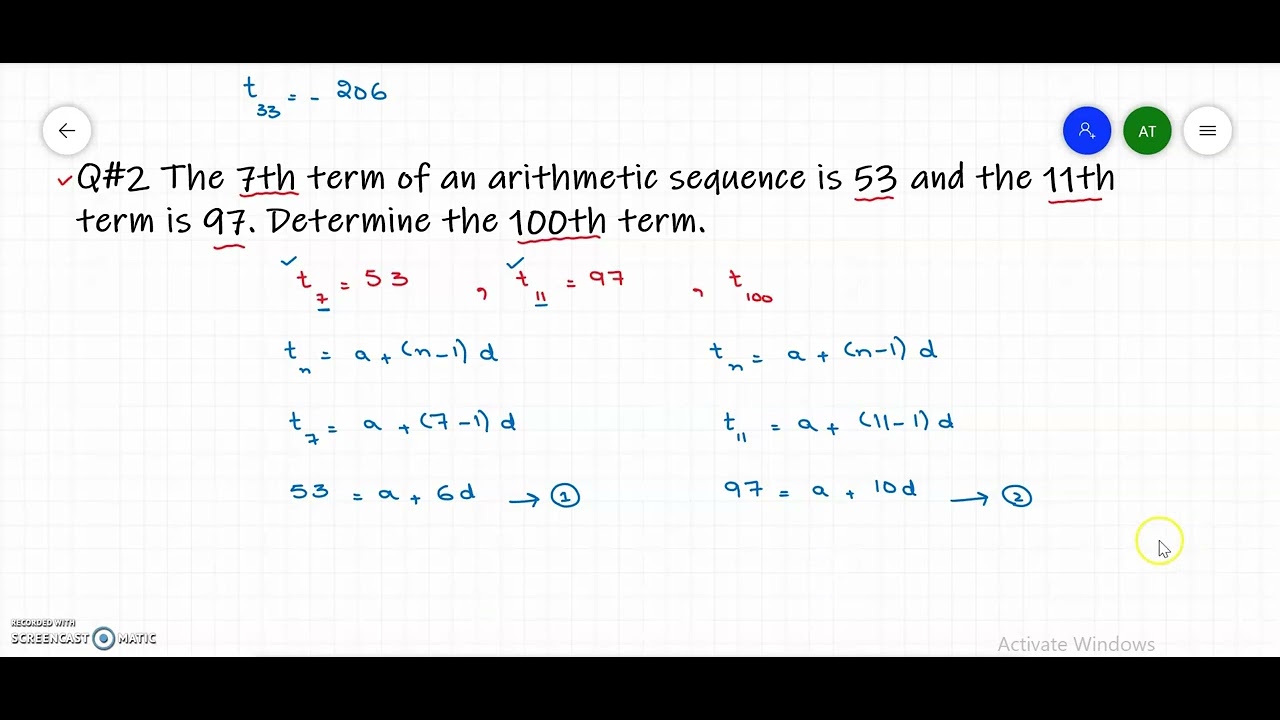 t33 = - 206
AT
Q#2 The 7th term of an arithmetic sequence is 53 and the 11th
term is 97. Determine the 100th term.
t7 = 53 , t11 = 97 , t100
tn = a + (n-1) d tn = a + (n-1) d
t7 = a + (7-1) d t11 = a + (11-1) d
53 = a + 6d → ① 97 = a + 10d → ②
RECORDED WITH
SCREENCAST MATIC
Activate Windows